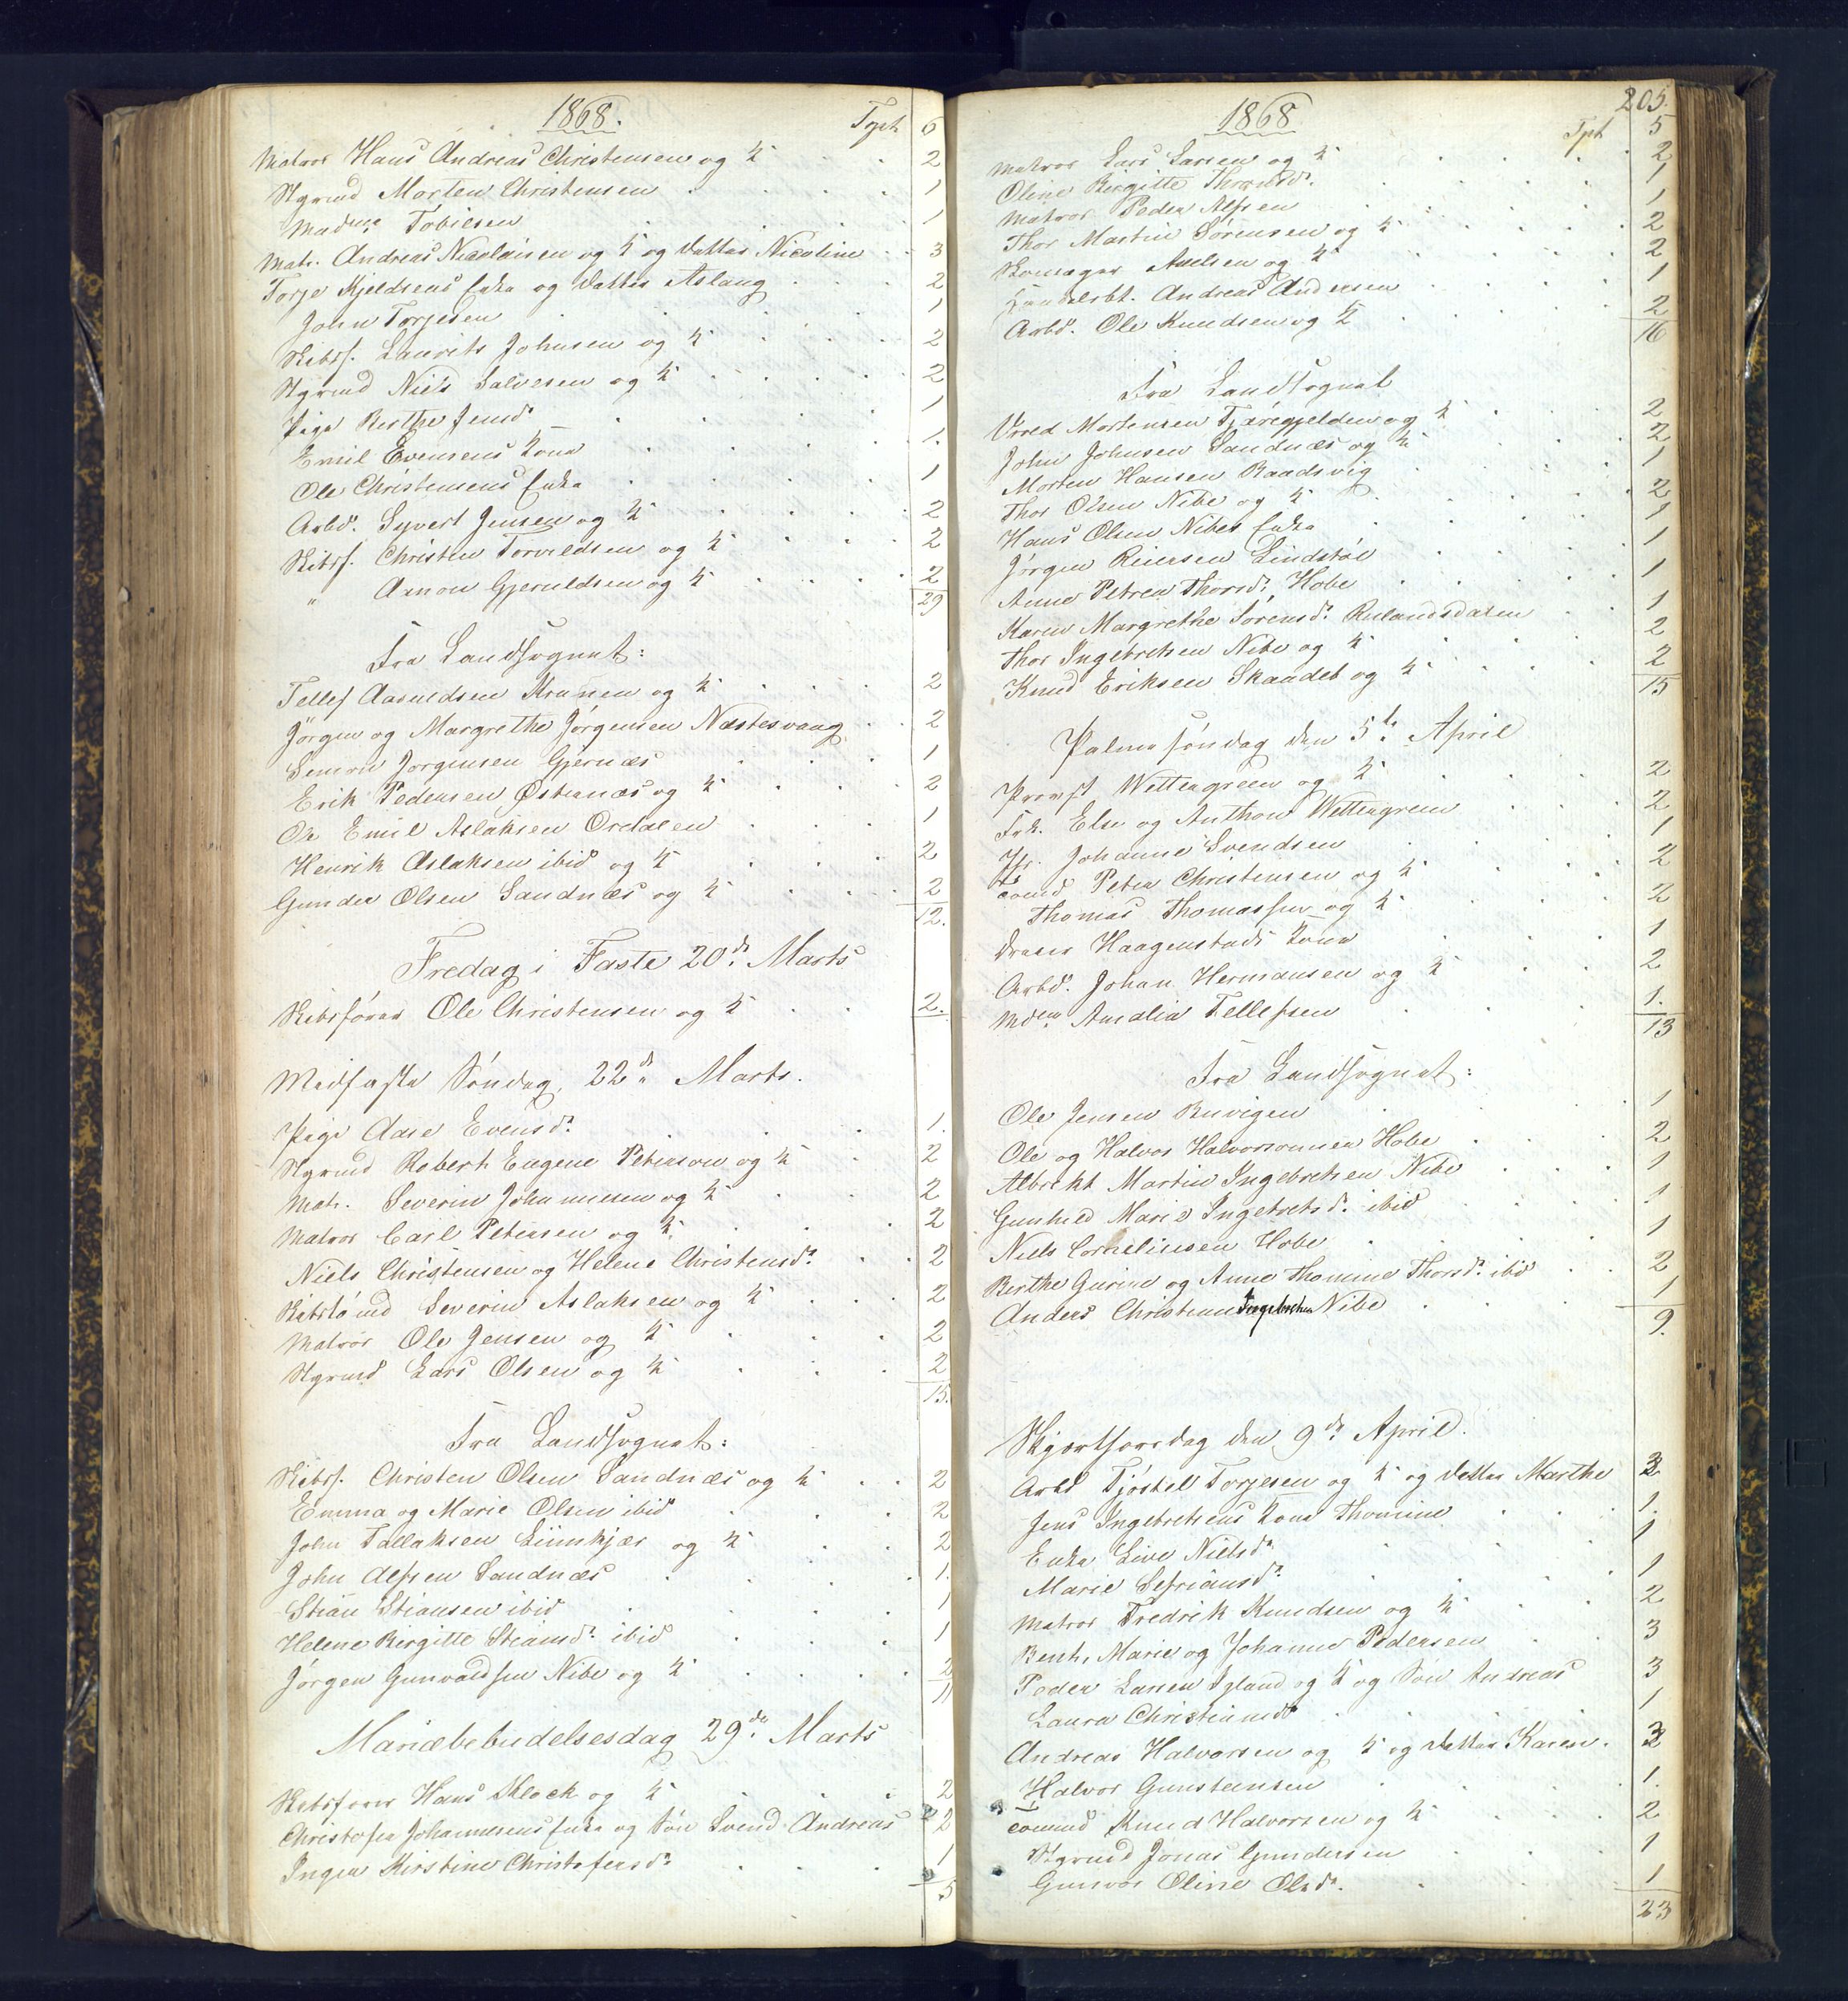 1868.
Tpt 6
Matros Hans Andreas Christensen og K 2
Styrmd Morten Christensen 1
Madme Tobiesen 1
Matr. Andreas Nicolaisen og K og datter Nicoline 3
Torje Kjeldsens Enke og datter Aslaug 2
John Torjesen 1
Skibsf. Laurits Johnsen og K 2
Styrmd Niels Salvesen og K 2
Pige Berthe Jensdr 1
Emil Evensens Kone 1.
Ole Christensens Enke 1
Arbdr. Syvert Jensen og K 2
Skibsf. Christen Torvildsen og K 2
" Arnon Gjeruldsen og K 2
29
Fra Landsognet:
Tellef Aanuldsen og K 2
Jörgen og Margrethe Jörgensen Næstesvaag 2
Simon Jörgensen Gjernæs 1
Erik Pedersen Østernæs og K 2
Ole Emil Aslaksen Ordalen 1
Henrik Aslaksen ibid og K 2
Gunder Olsen Sandnæs og K 2
12.
Fredag i Faste 20de Marts
Skibsförer Ole Christensen og K 2.
Midfaste Söndag, 22de Marts.
Pige Aase Evensdr 1.
Styrmd Robert Eugene Peterson og K 2
Matr. Severin Johannesen og K 2
Matros Carl Petersen og K. 2
Niels Christensen og Helene Christensdr 2
Severin Aslaksen og K 2
Matros Ole Jensen og K 2
Styrmd Lars Olsen og K 2
15.
Fra Landsognet:
Skibsf. Christen Olsen Sandnæs og K 2
Emma og Marie Olsen ibid 2
John Tallaksen og K 2
John Alfsen Sandnæs 1.
Stian Stiansen ibid 1
Helene Birgitte Stiansdr ibid 1
Jørgen Gunvaldsen Nibe og K 2
11
Mariæbebudelsesdag 29de Marts
Skibsförer Hans Klock og K 2
Christofer Johannesens Enke og Sön Svend Andreas 2
Inger Kirstine Christofersdr 1
5
1868 205.
Tpt 5
Matros Lars Larsen og K 2
Oline Birgitte Thorsdr. 1
Matros Peder Alfsen 1
Thor Martin Sörensen og K 2
Skomager Axelsen og K 2
Handelsbt. Andreas Andersen 1
Arbdr. Ole Knudsen og K 2
16
Fra Landsognet
Vrold Mortensen og K 2
John Johnsen Sandnæs og K 2
Morten Hansen Raadsvig 1
Thor Olsen Nibe og K 2
Hans Olsen Nibes Enke 1
Jörgen Reiersen Lindstöl 1
Anne Petrea Thorsdr. Hobe 1
Karen Margrethe Sörensdr. 1
Thor Ingebretsen Nibe og K 2
Knud Eriksen Skaadet og K 2
15
Palmesöndag den 5te April
Provst Wettergreen og K 2
Frk. Else og Anthon Wettergreen 2
Jfr. Johanne Svendsen 1
Peter Christensen og K 2
Thomas Thomassen og K 2
Haagenstads Kone 1
Arbdr. Johan Hermansen og K 2
Mdme Amalia Tellefsen 1.
13
Fra Landsognet:
Ole Jensen Buvigen 1
Ole og Halvor Halvorsen Hobe 2
Albrekt Martin Ingebretsen Nibe 1
Gunhild Marie Ingebretsdr. ibid 1
Niels Corneliusen Hobe 1
Berthe Gurine og Anne Thomine Thorsdr. ibid 2
Anders Christian Ingebretsen Nibe 1
9.
Skjærtorsdag den 9de April.
Arbd Tjöstel Torjesen og K og datter Marthe 3
Jens Ingebretsens Kone Thomine 1.
Enke Live Nielsdr 1
Marie Sefriansdr 1
Matros Fredrik Knudsen og K 2
Bent, Marie og Johanne Pedersen 3
Peder Larsen Igland og K og Sön Andreas 3
Laura Christiansdr 1
Andreas Halvorsen og K og datter Karen. 3
Halvor Gunstensen 1.
Knud Halvorsen og K 2
Styrmd Jonas Gundersen 1
Gunvor Oline Olsdr. 1
23